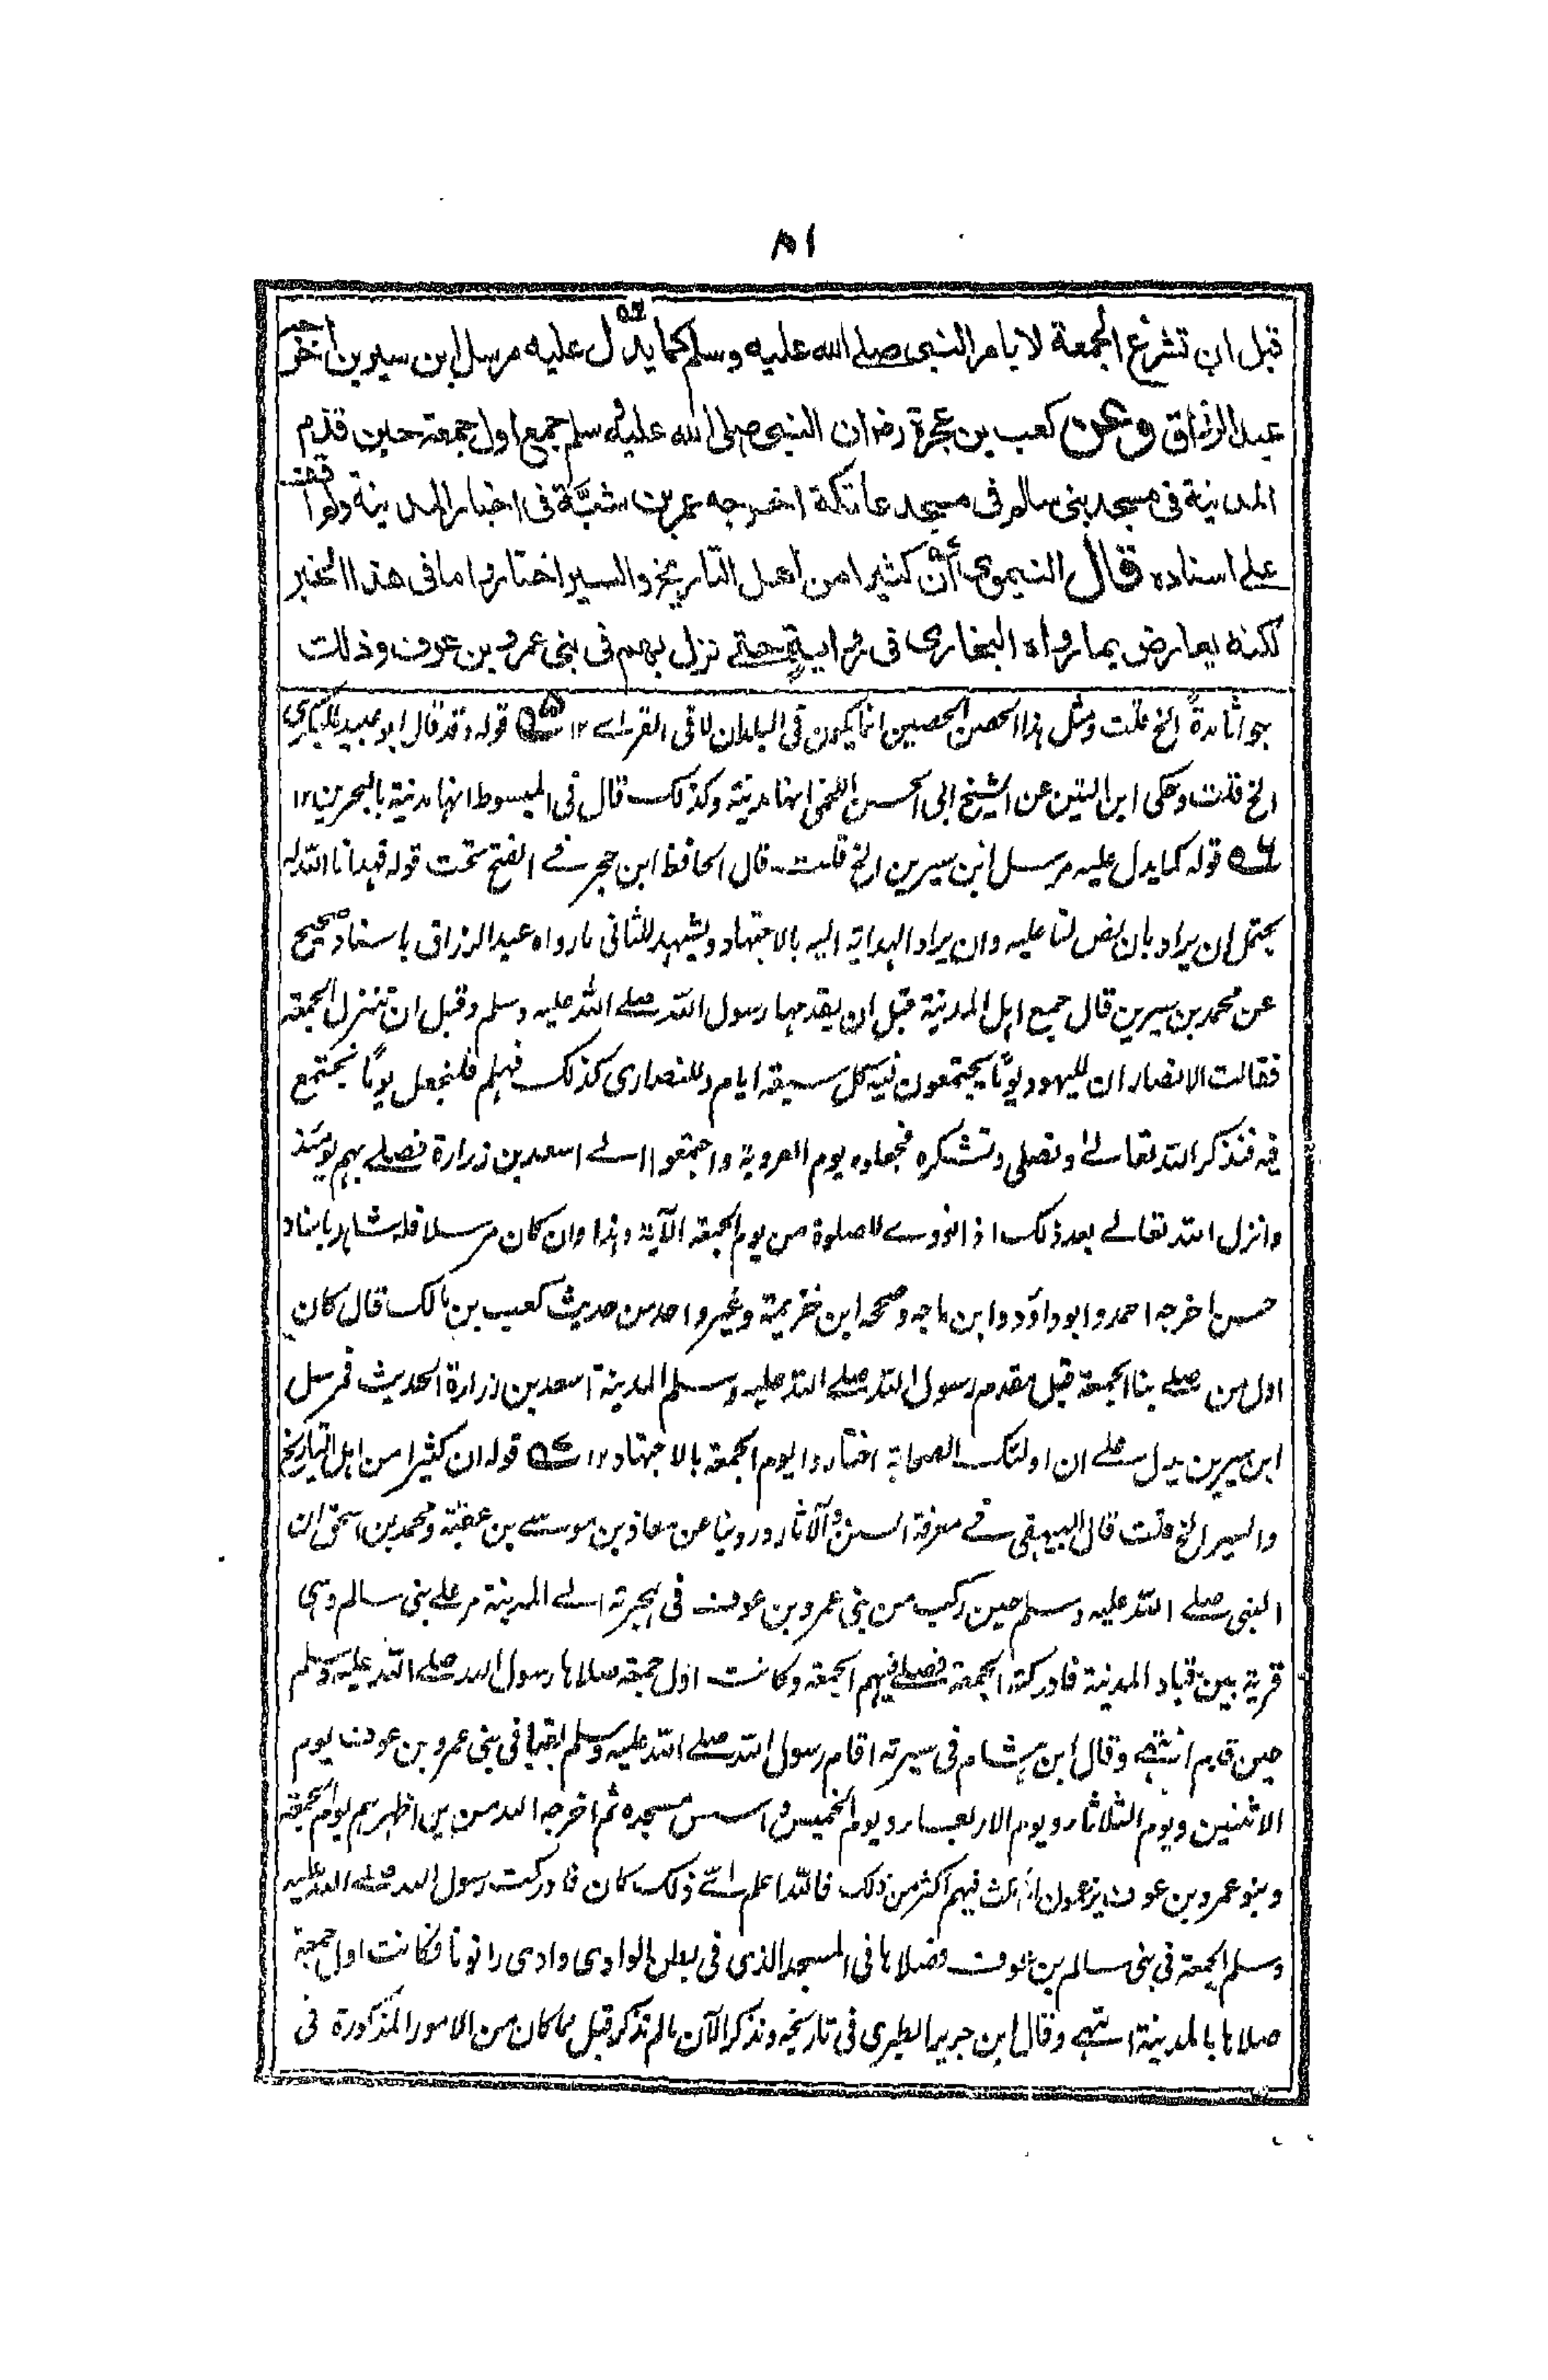 ٨١
قبل ان تشرع الجمعة لا بامر النبى صلے الله عليه وسلم كما يدل عليه مرسل ابن سيرين اخرجه
عبد الرزاق وعن كعب بن عجرة رضى ان النبى صلى الله عليه وسلم جمع اول جمعة حين قدم
المدينة فى مسجد بنى سالم فى مسجد عاتكة اخرجه عمر بن شبّة فى اخبار المدينة ولم اقف
علے اسناده قال النيموى ان كثيرا من اهل التاريخ والسير اختاروا ما فى هذا الخبر
لكنه يعارض بما رواه البخارى فى رواية حتے نزل بهم فى بنى عمرو بن عوف وذلك
بجواثا مدة الخ قلت ومثل هذا الحصن الحصين انما يكون فى البلدان لا فى القرے ١٢ ۵ قوله وقد قال ابو عبيد البكرى
الخ قلت وحكى ابن التين عن الشيخ ابى الحسن اللخمى انها مدينة وكذلك قال فى المبسوط انها مدينة بالبحرين ١٢
۶ قوله كما يدل عليه مرسل ابن سيرين الخ قلت قال الحافظ ابن حجر فے الفتح تحت قوله فهدانا الله له
يحتمل ان يراد بان نص لنا عليه وان يراد الهداية اليه بالاجتهاد ويشهد للثانى ما رواه عبد الرزاق باسناد صحيح
عن محمد بن سيرين قال جمع اهل المدينة قبل ان يقدمها رسول الله صلے الله عليه وسلم وقبل ان تنزل الجمعة
فقالت الانصار ان لليهود يومًا يجتمعون فيه كل سبعة ايام وللنصارى كذلك فهلم فلنجعل يومًا نجتمع
فيه فنذكر الله تعالے ونصلى ونشكره فجعلوه يوم العروبة واجتمعوا الے اسعد بن زرارة فصلے بهم يومئذ
وانزل الله تعالے بعد ذلك اذا نودے للصلوة من يوم الجمعة الآية وهذا وان كان مرسلا فله شاهد باسناد
حسن اخرجه احمد وابو داؤد وابن ماجه وصححه ابن خزيمة وغير واحد من حديث كعب بن مالك قال كان
اول من صلے بنا الجمعة قبل مقدم رسول الله صلے الله عليه وسلم المدينة اسعد بن زرارة الحديث فمرسل
ابن سيرين يدل علے ان اولئك الصحابة اختاروا يوم الجمعة بالاجتهاد ١٢ ۷ قوله ان كثيرا من اهل التاريخ
والسير الخ قلت قال البيهقى فے معرفة السنن والآثار وروينا عن معاذ بن موسے بن عقبة ومحمد بن اسحق ان
النبى صلے الله عليه وسلم حين ركب من بنى عمرو بن عوف فى هجرته الے المدينة مر علے بنى سالم وهى
قرية بين قباء والمدينة فادركته الجمعة فصلے فيهم الجمعة وكانت اول جمعة صلاها رسول الله صلے الله عليه وسلم
حين قدم انتهے وقال ابن هشام فى سيرته اقام رسول الله صلے الله عليه وسلم بقبا فى بنى عمرو بن عوف يوم
الاثنين ويوم الثلاثاء ويوم الاربعاء ويوم الخميس واسس مسجده ثم اخرجه الله من بين اظهرهم يوم الجمعة
وبنو عمرو بن عوف يزعمون انه مكث فيهم اكثر من ذلك فالله اعلم اے ذلك كان فادركت رسول الله صلے الله عليه
وسلم الجمعة فى بنى سالم بن عوف فصلاها فى المسجد الذى فى بطن الوادى وادى رانونا فكانت اول جمعة
صلاها بالمدينة انتهے وقال ابن جرير الطبرى فى تاريخه ونذكر الآن ما لم نذكر قبل مما كان من الامور المذكورة فى